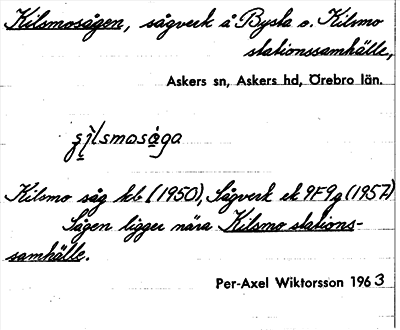 Kilsmosågen, sågverk å Bysta o. Kilsmo
stationssamhälle,
Askers sn, Askers hd, Örebro län.
Kilsmo såg kb (1950), Sågverk ek 9F9g (1957)
Sågen ligger nära Kilsmo stations-
samhälle.
Per-Axel Wiktorsson 1963